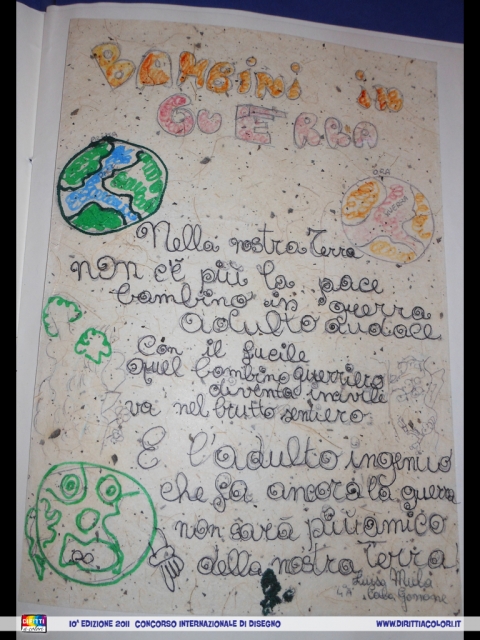 BAMBINI in
GuERRA
PRIMA
ORA
Nella nostra Terra
non c'è più la pace
bambino in guerra
adulto audace.
Con il fucile
quel bambino guerriero
diventa incivile
va nel brutto sentiero.
E l'adulto ingenuo
che fa ancora la guerra
non sarà più amico
della nostra Terra!
4ªA
DIRITTI A COLORI
10ª EDIZIONE 2011 CONCORSO INTERNAZIONALE DI DISEGNO
WWW.DIRITTIACOLORI.IT